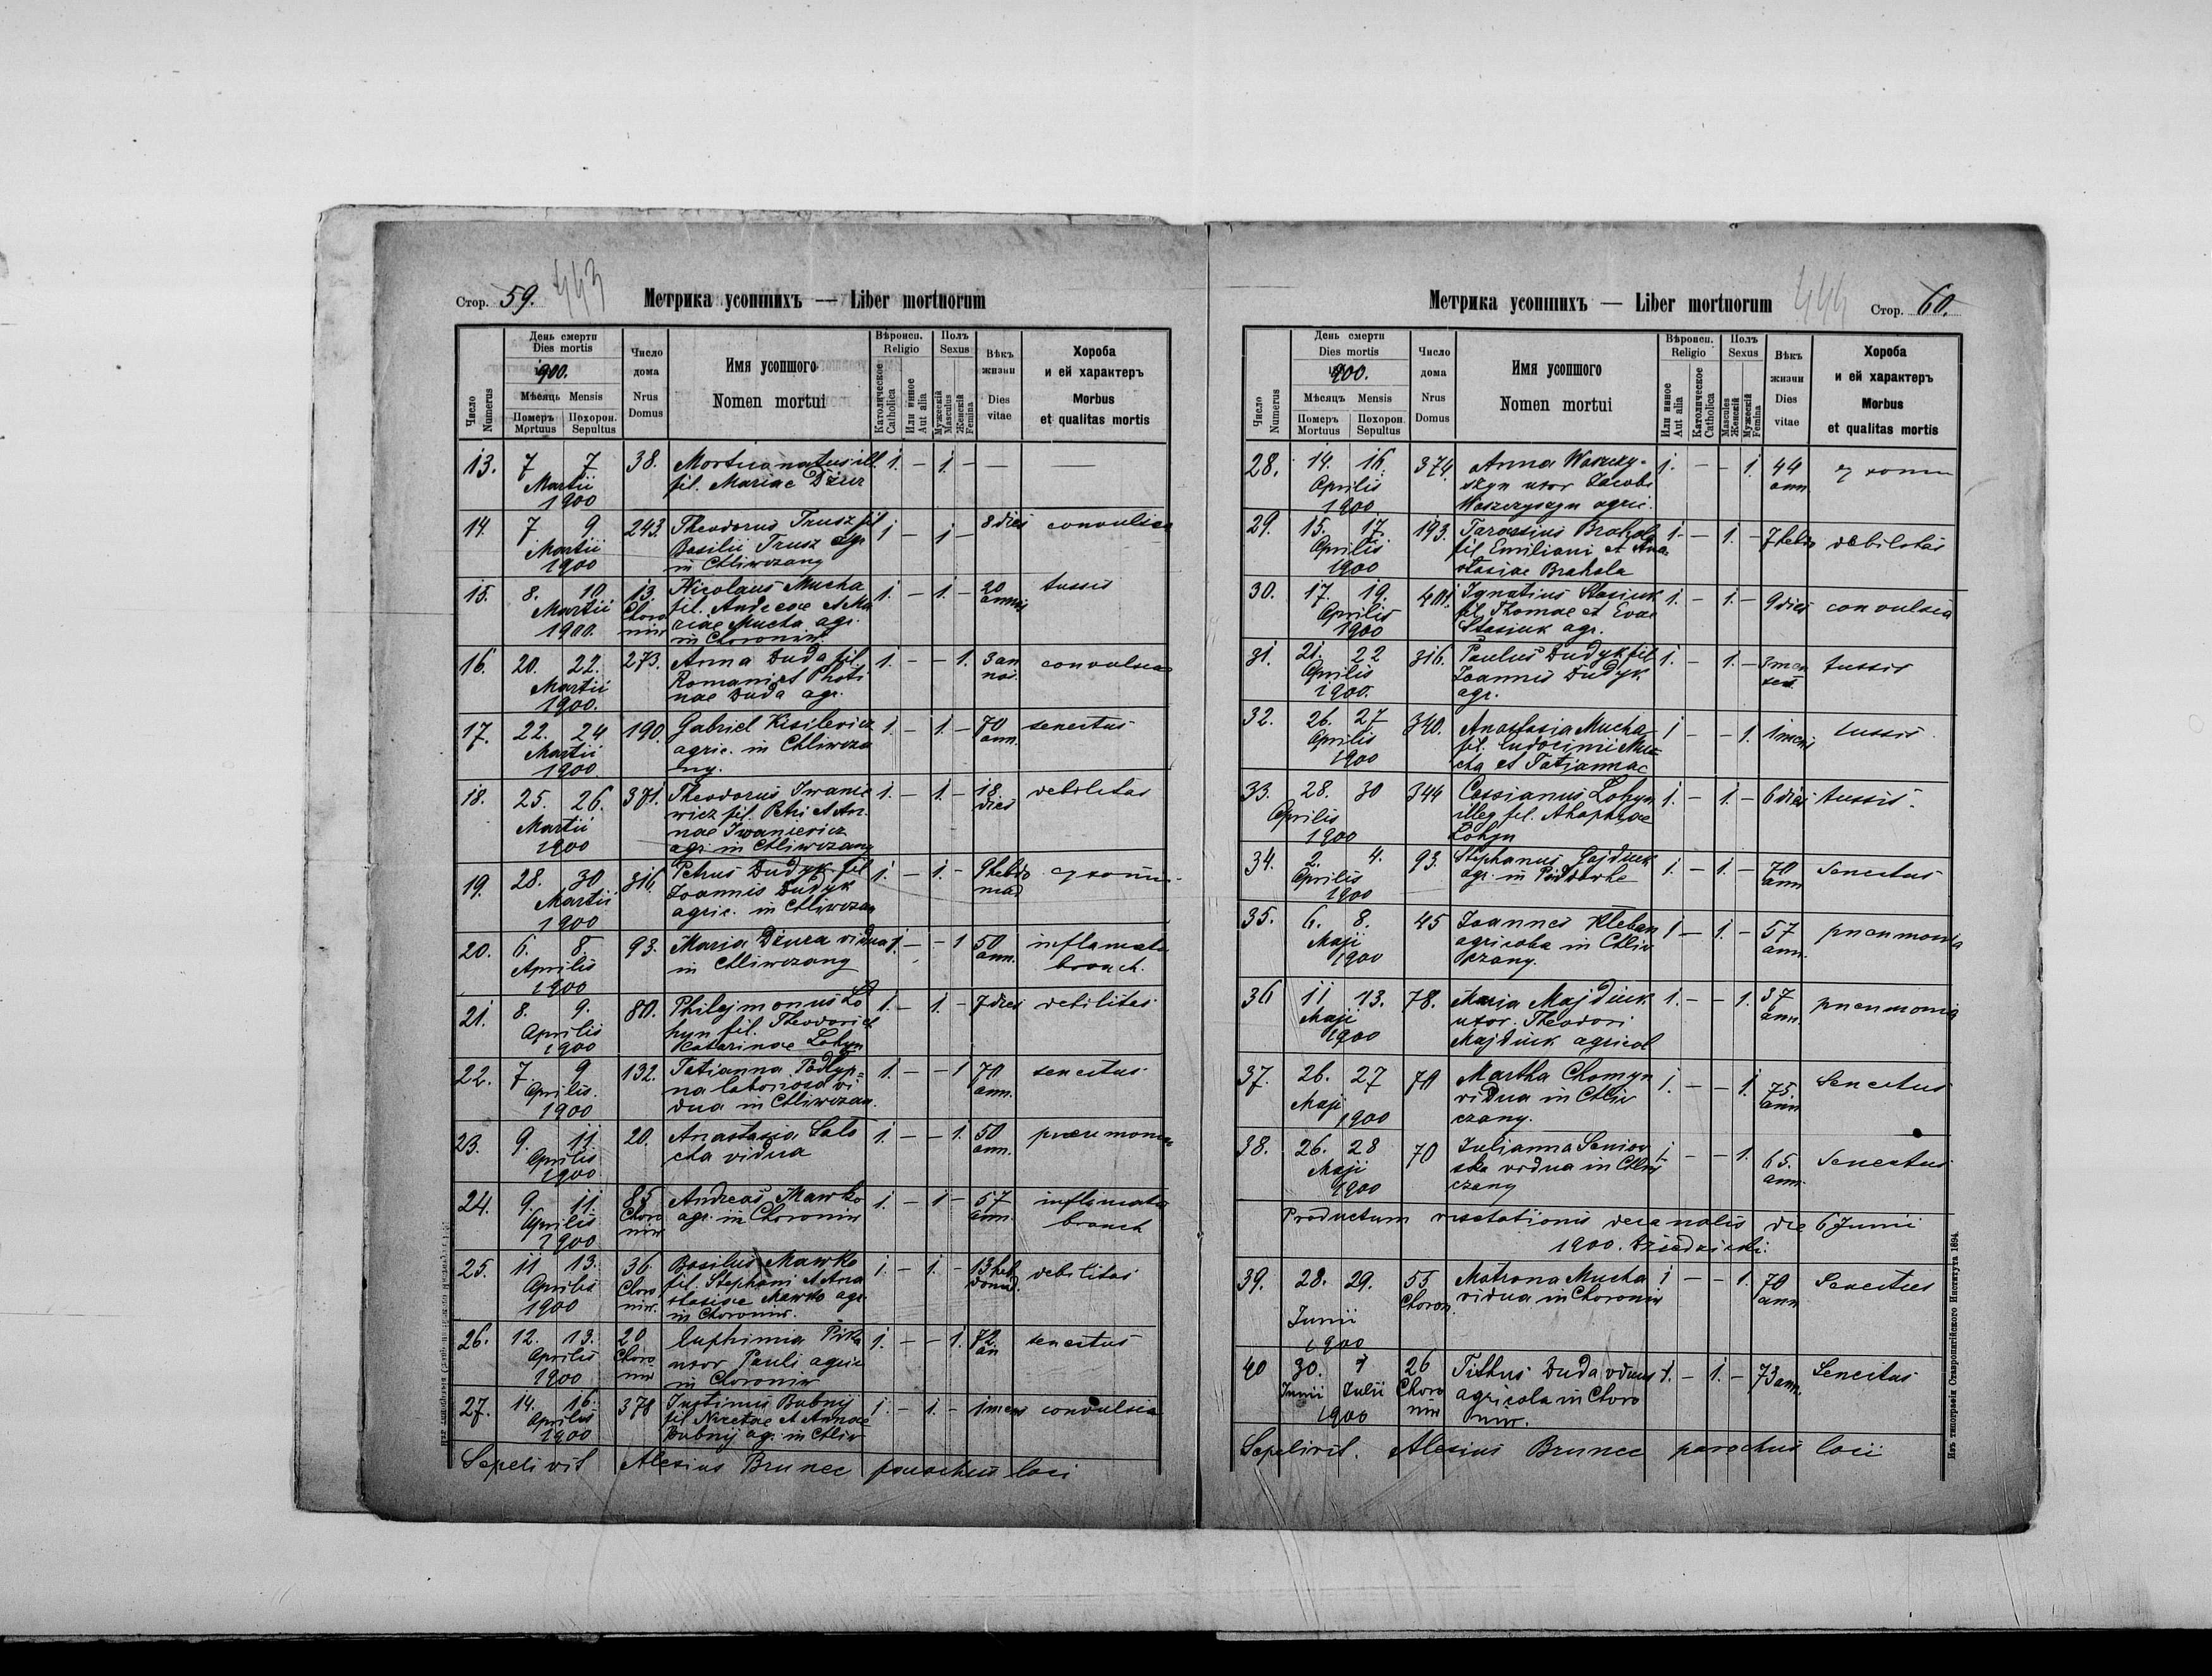 Стор. 59. 443
Метрика усопшихъ — Liber mortuorum
Число Numerus
День смерти
Dies mortis
1900.
Мѣсяцъ Mensis
Померъ Mortuus
Похорон. Sepultus
Число дома Nrus Domus
Имя усопшого
Nomen mortui
Вѣроисп. Religio
Католическое Catholica
Или инное Aut alia
Полъ Sexus
Мужескій Masculus
Женскій Femina
Вѣкъ жизни Dies vitae
Хороба
и ей характеръ
Morbus
et qualitas mortis
13. 7 7 38. Mortuo natus ill. 1. — 1 — — —
Martii fil. Mariae Dżur
1900
14. 7. 9 243. Theodorus Trusz fil 1 — 1 — 8 dies convulsia
Martii Basilii Trusz agr
1900 in Chliwczany
15. 8. 10. 13. Nicolaus Mucha 1. — 1. — 20 tussis
Martii Choro fil. Andreae et Ma annis
1900. niw riae Mucha agr.
in Choroniw
16. 20. 22. 273. Anna Duda fil. 1. — — 1. 3 an convulsia
Martii Romani et Photi nos.
1900. nae Duda agr.
17. 22. 24 190. Gabriel Kisilevicz 1. — 1. — 70 senectus
Martii agric. in Chliwcza ann.
1900 ny.
18. 25. 26. 301. Theodorus Iwanie 1. — 1. — 18. debilitas
Martii wicz fil. Petri et An dies
1900 nae Iwaniewicz
agr. in Chliwczany
19. 28. 30 316. Petrus Dudyk fil 1. — 1. — 9 hebdo
Martii Ioannis Dudyk mad
1900 agric. in Chliwczan
20. 6. 8. 93. Maria Dżura vidua 1. — — 1 50 inflamatio
Aprilis in Chliwczany ann. bronch.
1900
21. 8. 9. 80. Philymonus Lo 1. — 1. — 7 dies debilitas
Aprilis hyn fil. Theodori et
1900 Catarinae Lohyn
22. 7. 9 132. Tatianna Podlyp- 1. — — 1 70 senectus
Aprilis. na laboriosa vi ann.
1900 dua in Chliwczan.
23. 9. 11. 20. Anastasia Salo 1. — — 1. 50 pneumonia
Aprilis cha vidua ann.
1900
24. 9. 11. 85 Andreas Mawko 1. — 1 — 57 inflamatio
Aprilis Choro agr. in Choroniw ann. bronch
1900 niw
25. 11 13. 36. Basilius Mawko 1. — 1. — 13 heb debilitas
Aprilis Choro fil. Stephani et Ana domad.
1900 niw. stasiae Mawko agr.
in Choroniw.
26. 12. 13. 20 Euphimia Pika 1. — — 1. 72 senectus
Aprilis Choro uxor Pauli agric an
1900 niw in Choroniw
27. 14. 16. 378 Justinus Bubnij 1. — 1. — 1 mens convulsia
Aprilis fil Nicetae et Annae
1900 Bubnij ag. in Chliw
Sepelivit Alexius Brunec parochus loci
Метрика усопшихъ — Liber mortuorum
444 Стор. 60.
Число Numerus
День смерти
Dies mortis
1900.
Мѣсяцъ Mensis
Померъ Mortuus
Похорон. Sepultus
Число дома Nrus Domus
Имя усопшого
Nomen mortui
Вѣроисп. Religio
Или инное Aut alia
Католическое Catholica
Полъ Sexus
Masculus Женскій
Мужескій Femina
Вѣкъ жизни Dies vitae
Хороба
и ей характеръ
Morbus
et qualitas mortis
28. 14. 16. 374. Anna Waszczy- 1. — — 1. 44
Aprilis szyn uxor Iacobi ann
1900. Waszczyszyn agric.
29. 15. 17. 193. Tarassius Brahola 1. — 1. — 7 hebdo debilitas
Aprilis fil Emiliani et Ana
1900 stasiae Brahola
30. 17. 19. 401. Ignatius Stasiuk 1. — 1. — 9 dies convulsia
Aprilis fil. Thomae et Evae
1900 Stasiuk agr.
31. 21. 22 316. Paulus Dudyk fil 1. — 1. — 3 men tussis
Aprilis Ioannis Dudyk ses
1900. agr.
32. 26. 27 340. Anastasia Mucha 1 — — 1. 1 mens tussis
Aprilis fil. Eudocimi Mu
1900 cha et Tatjannae
33. 28. 30 344 Cassianus Lohyn 1. — 1. — 6 dies tussis.
Aprilis illeg fil. Ahaphiae
1900 Lohyn
34. 2. 4. 93. Stephanus Gajdiuk 1. — 1. — 70 Senectus
Aprilis agr. in Piddubhe ann
1900
35. 6. 8. 45 Ioannes Kleban 1 — 1. — 57 pneumonia
Maji agricola in Chliw ann.
1900 czany.
36 11 13. 78. Maria Majdiuk 1. — — 1. 37 pneumonia
Maji uxor. Theodori ann.
1900 Majdiuk agricol
37. 26. 27 70 Martha Chomyn 1. — — 1. 75. Senectus
Maji vidua in Chliw ann
1900 czany.
38. 26. 28 70 Iulianna Seniow 1 — — 1. 65. Senectus
Maji ska vidua in Chliw ann.
1900 czany
Productum visitationis decanalis die 6 Junii
1900.
39. 28. 29. 55 Matrona Mucha 1 — — 1. 70 Senectus
Junii Choron. vidua in Choroniw ann
1900
40 30. 1 26 Tithus Duda viduus 1. — 1. — 73 ann. Senectus
Junii Julii Choro agricola in Choro
1900 niw niw.
Sepelivit. Alexius Brunec parochus loci
Изъ типографіи Ставропигійского Института 1894.